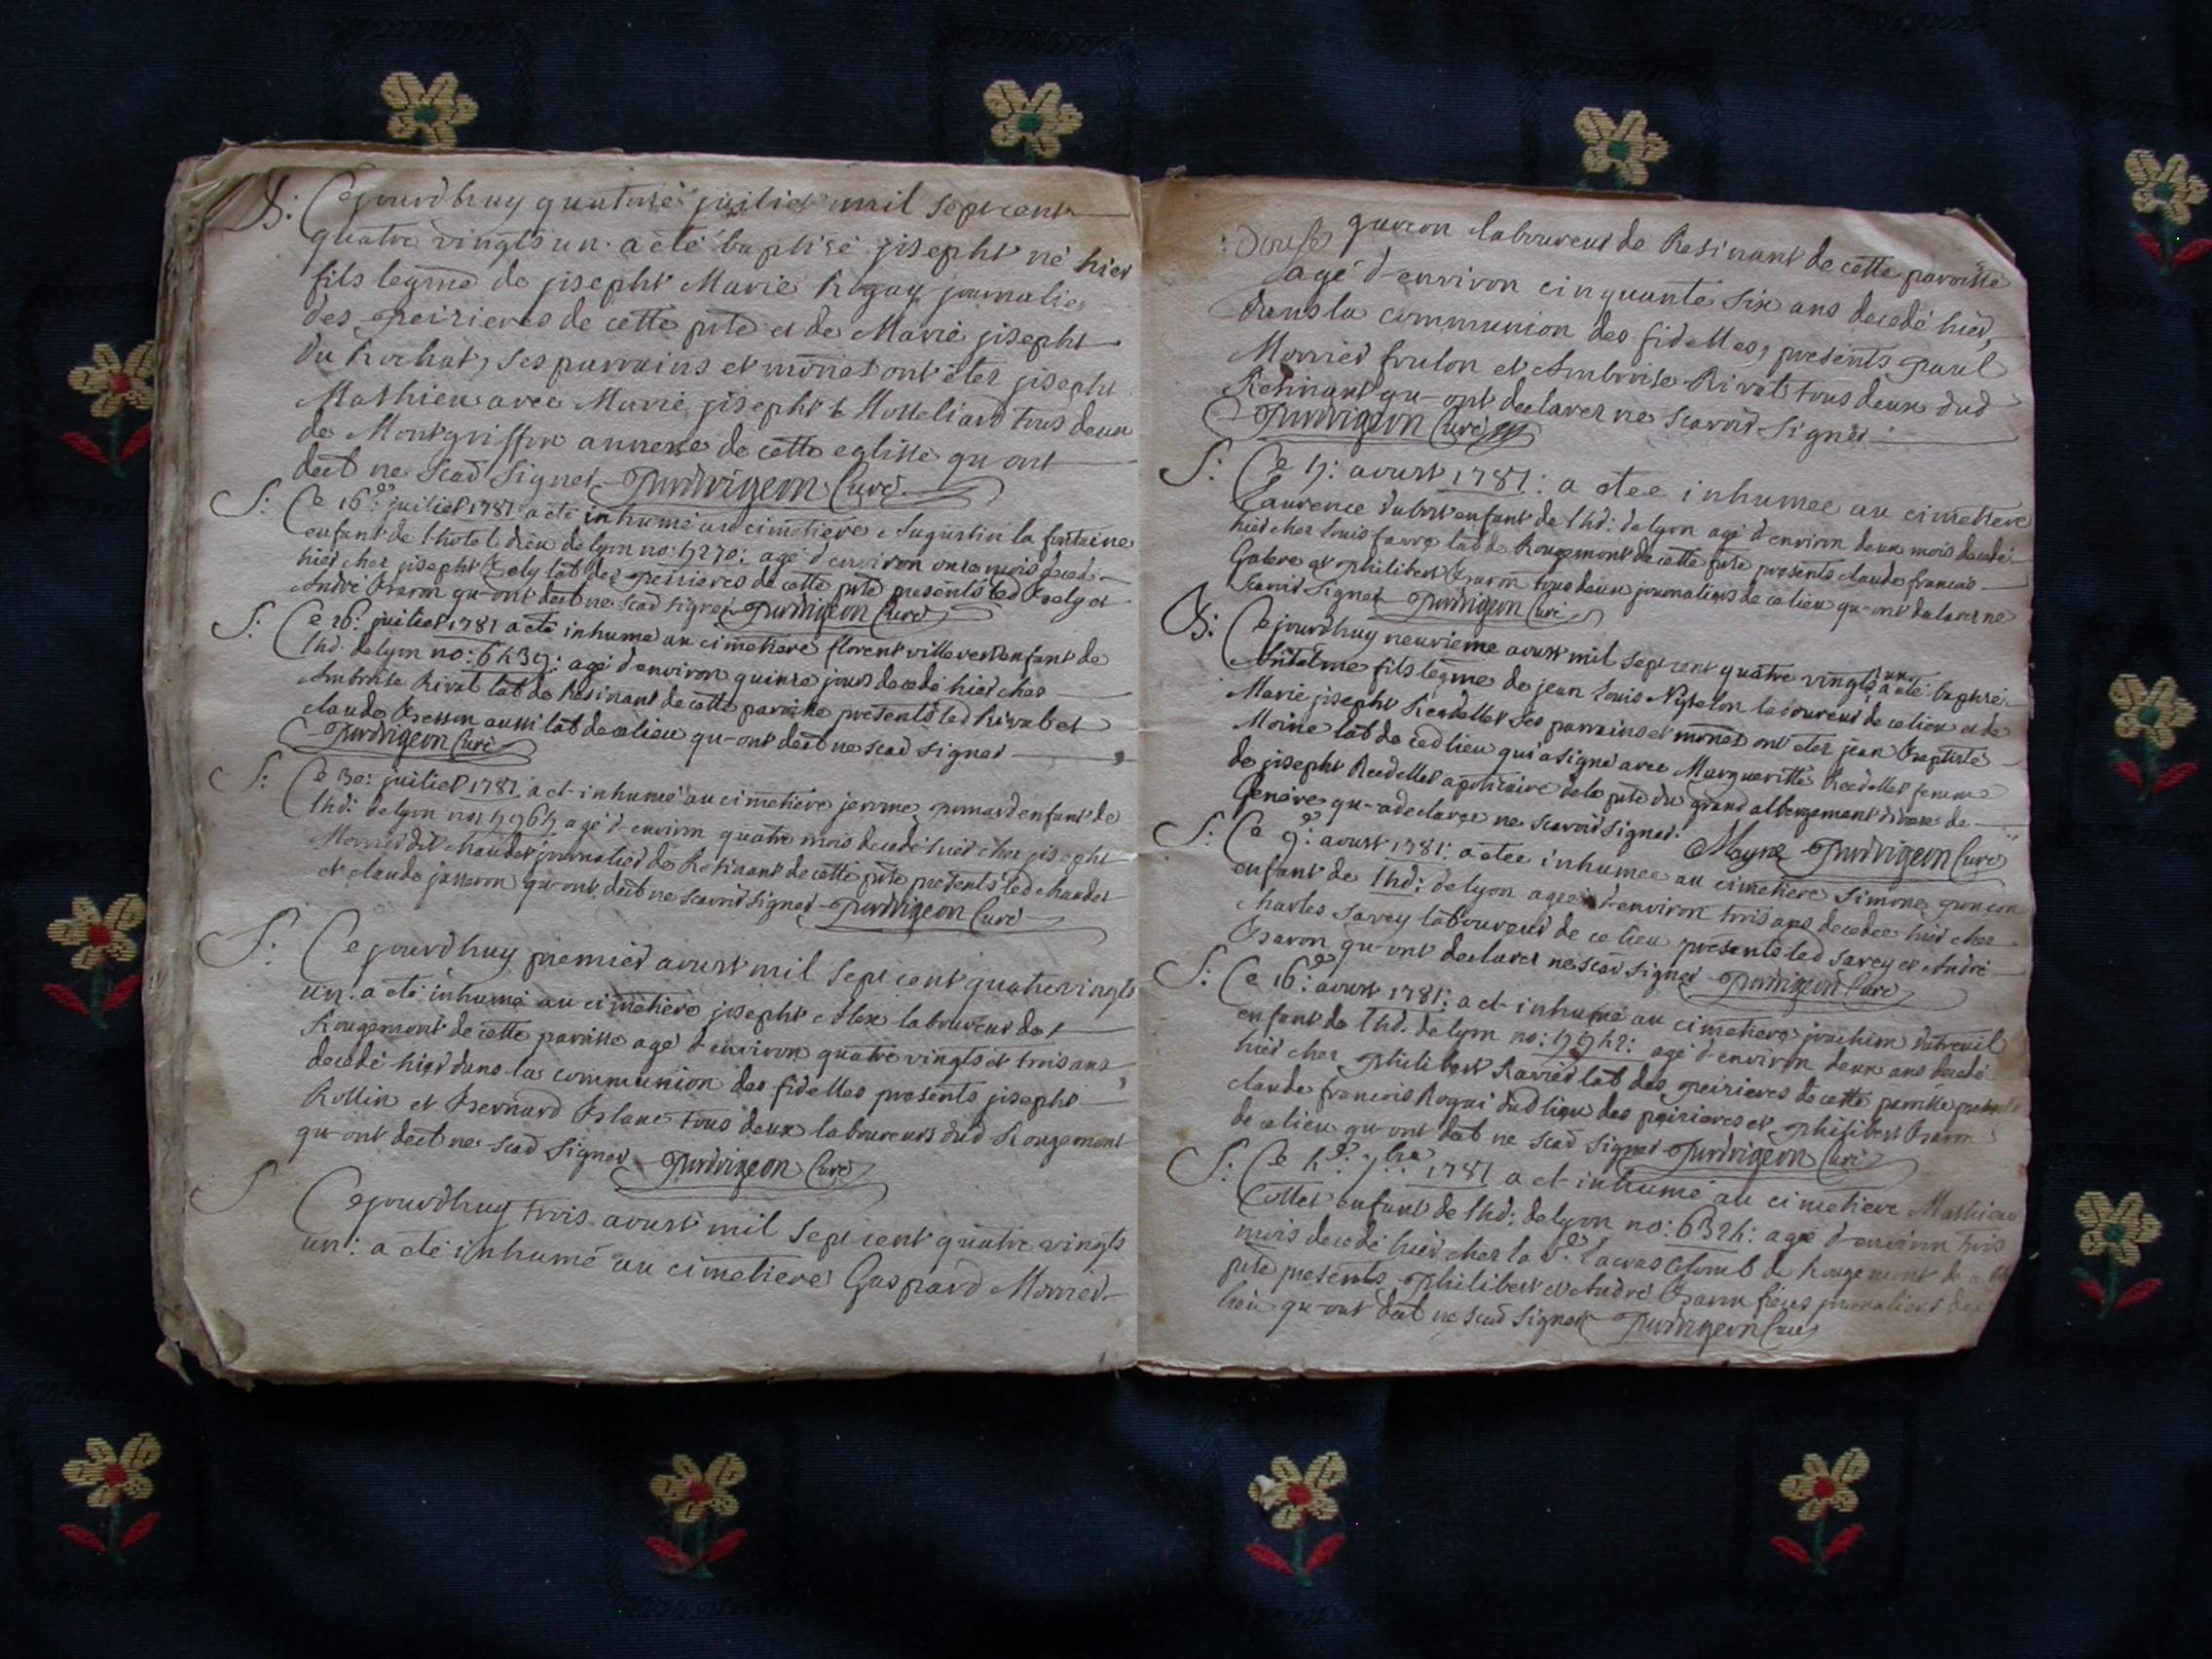 B: Cejourdhuy quatorse juiliet mil sept cent
quatre vingts un. a été baptisé joseph né hier
fils legme de joseph Marie Rogay journalier
des peirieres de cette psse et de Marie joseph
du Rochat, ses parrains et mones ont étez joseph
Mathieu avec Marie joseph Motteliard tous deux
de Montgriffon annexe de cette eglisse qu-ont
dect ne scad signer Purdrigeon Curé
S: Ce 16e: juiliet 1781 a eté inhumé au cimetiere Augustin la fontaine
enfant de l'hotel dieu de lyon no: agé d'environ onze mois deced
hier chez joseph lab des peirieres de cette psse presents led et
André Baron qu-ont dect ne scad signer Purdrigeon Curé
S: Ce 26: juiliet 1781 a eté inhumé au cimetiere florent villevert enfant de
lhd. de lyon no: agé d'environ quinze jours decedé hier chez
Ambroise Rivat lab de Resinant de cette paroisse presents led Rivat et
claude Besson aussi lab de ce lieu qu-ont dect ne scad signer
Purdrigeon Curé
S: Ce 30: juiliet 1781 a et inhumé au cimetiere jerome enfant de
lhd: de lyon no: agé d'environ quatre mois decedé hier chez joseph
Morrier dit chaudet journalier de Resinant de cette psse presents led chaudet
et claude jasseron qu-ont dect ne scavoir signer Purdrigeon Curé
S: Ce jourdhuy premier aoust mil sept cent quatrevingts
un. a été inhumé au cimetiere joseph Alex laboureur de
Rougemont de cette paroisse agé d'environ quatre vingts et trois ans
decedé hier dans la communion des fidelles presents joseph
Rollin et Bernard Blanc tous deux laboureurs dud Rougemont
qu-ont dect ne scad signer Purdrigeon Curé
S Cejourdhuy trois aoust mil sept cent quatre vingts
un: a été inhumé au cimetiere Gaspard Morrier
garcon laboureur de Resinant de cette paroisse
agé d'environ cinquante six ans decedé hier,
dans la communion des fidelles, presents paul
Morrier foulon et Ambroise Rivat tous deux dud
Resinant qu-ont declarer ne scavoir signer
Purdrigeon Curé
S: Ce aoust 1781: a etee inhumee au cimetiere
Laurence enfant de lhd: de lyon agé d'environ deux mois decedé
hier chez louis favre lab de Rougemont de cette psse presents claude francois
et philibert Baron tous deux journaliers de ce lieu qu-ont declarer ne
scavoir signer Purdrigeon Curé
B: Cejourdhuy neuvieme aoust mil sept cent quatre vingts un a été baptisé
Antelme fils legme de jean louis laboureur de ce lieu et de
Marie joseph Reedellet ses parrains et mones ont etez jean Baptiste
Moine lab de ced lieu qui a signé avec Margueritte Reedellet femme
de joseph Reedellet apoticaire de la psse du grand albergement diocese de
Geneve qu-a declarer ne scavoir signer. Moyne Purdrigeon Curé
S: Ce 9e: aoust 1781: a etee inhumee au cimetiere Simone
enfant de lhd: de lyon agee d'environ trois ans decedee hier chez
charles Savey laboureur de ce lieu presents led Savey et André
Baron qu-ont declarer ne scad signer Purdrigeon Curé
S: Ce 16e: aoust 1781: a et inhumé au cimetiere joachim
enfant de lhd. de lyon no: agé d'environ deux ans decedé
hier chez philibert Ravier lab des peirieres de cette paroisse presents
claude francois Rogai dud lieu des peirieres et philibert Baron
de ce lieu qu-ont dect ne scad signer Purdrigeon Curé
S: Ce 7bre 1781 a et inhumé au cimetiere Mathieu
Cottet enfant de lhd: de lyon no: agé d'environ trois
mois decedé hier chez la de Rougemont de
psse presents philibert et André Baron journaliers de ce
lieu qu-ont dect ne scad signer Purdrigeon Curé